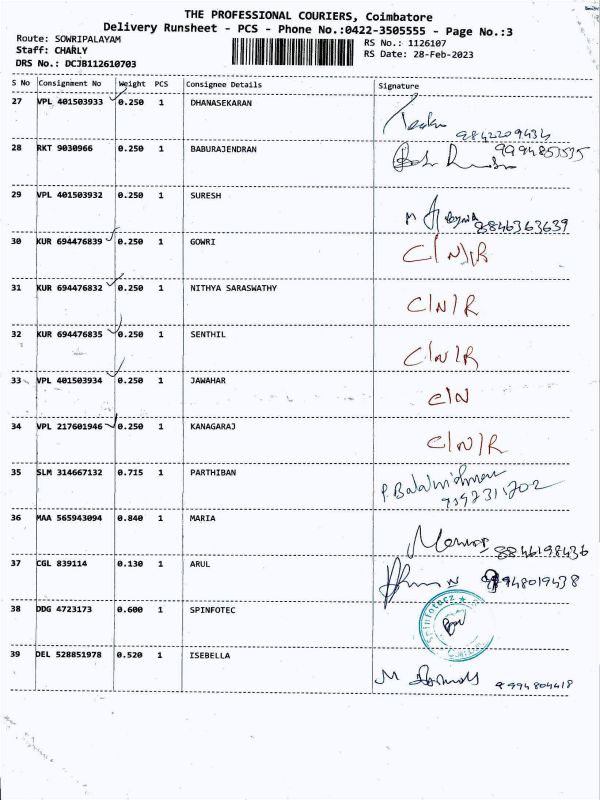 THE PROFESSIONAL COURIERS, Coimbatore
Delivery Runsheet - PCS - Phone No.:0422-3505555 - Page No.:3
Route: SOWRIPALAYAM
RS No.: 1126107
Staff: CHARLY
RS Date: 28-Feb-2023
DRS No.: DCJB112610703
S No Consignment No Weight PCS Consignee Details Signature
27 VPL 401503933 0.250 1 DHANASEKARAN
9842209434
28 RKT 9030966 0.250 1 BABURAJENDRAN
9994857575
29 VPL 401503932 0.250 1 SURESH
8846363639
30 KUR 694476839 0.250 1 GOWRI C/N/R
31 KUR 694476832 0.250 1 NITHYA SARASWATHY C/N/R
32 KUR 694476835 0.250 1 SENTHIL C/N/R
33 VPL 401503934 0.250 1 JAWAHAR C/N
34 VPL 217601946 0.250 1 KANAGARAJ C/N/R
35 SLM 314667132 0.715 1 PARTHIBAN P. Balakrishnan
36 MAA 565943094 0.840 1 MARIA
8846198436
37 CGL 839114 0.130 1 ARUL
9948019438
38 DDG 4723173 0.600 1 SPINFOTEC
Spinfotecz
39 DEL 528851978 0.520 1 ISEBELLA
9994804418